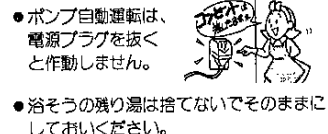 ●ポンプ自動運転は、
電源プラグを抜く
と作動しません。
コンセントは
●浴そうの残り湯は捨てないでそのままに
しておいください。